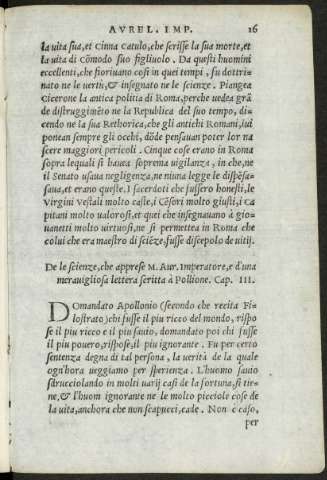 AVREL. IMP. 16
la uita sua, et Cinna Catulo, che scrisse la sua morte, et
la uita di Cõmodo suo figliuolo. Da questi huomini
eccellenti, che fioriuano cosi in quei tempi, fu dottri-
nato ne le uertù, & insegnato ne le scienze. Piangea
Cicerone la antica politia di Roma, perche uedea grã
de distruggimẽto ne la Republica del suo tempo, di-
cendo ne la sua Rethorica, che gli antichi Romani, iui
ponean sempre gli occhi, dõde pensauan poter lor na
scere maggiori pericoli. Cinque cose erano in Roma
sopra lequali si hauea soprema uigilanza, in che, ne
il Senato usaua negligenza, ne niuna legge le dispẽsa-
saua, et erano queste. I sacerdoti che fussero honesti, le
Virgini vestali molto caste, i Cẽsori molto giusti, i ca
pitani molto ualorosi, et quei che insegnauano à gio-
uanetti molto uirtuosi, ne si permettea in Roma che
colui che era maestro di sciẽze, fusse discepolo de uitij.
De le scienze, che apprese M. Aur. Imperatore, e d'una
merauigliosa lettera scritta à Pollione. Cap. III.
DOmandato Apollonio (secondo che recita Fi-
lostrato) chi fusse il piu ricco del mondo, rispo
se il piu ricco e il piu sauio, domandato poi chi fusse
il piu pouero, rispose, il piu ignorante. Fu per certo
sentenza degna di tal persona, la uerità de la quale
ogn'hora ueggiamo per sperienza. L'huomo sauio
sdrucciolando in molti uarij casi de la fortuna, si tie-
ne, & l'huom ignorante ne le molto picciole cose de
la uita, anchora che non scapucci, cade. Non è caso,
per